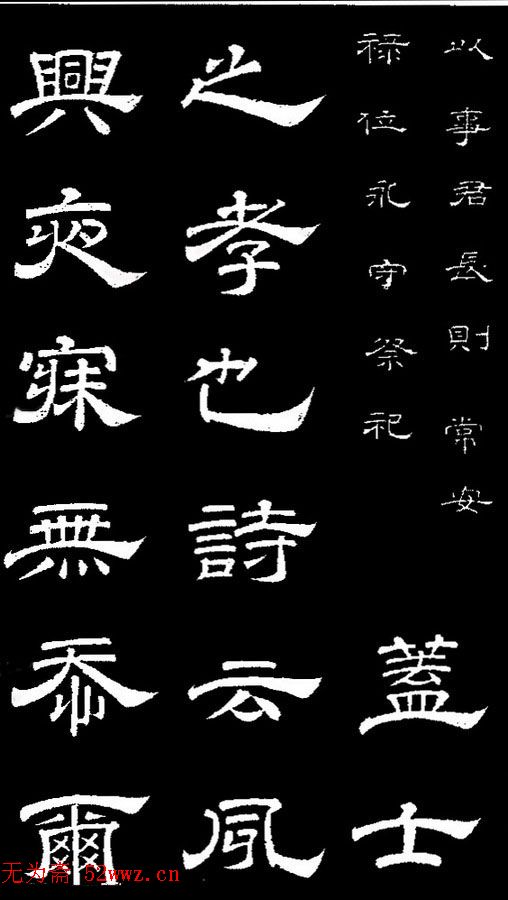 以事君長則常安
禄位永守祭祀
蓋士
之孝也詩云夙
興夜寐無忝爾
无为斋 52wwz.cn